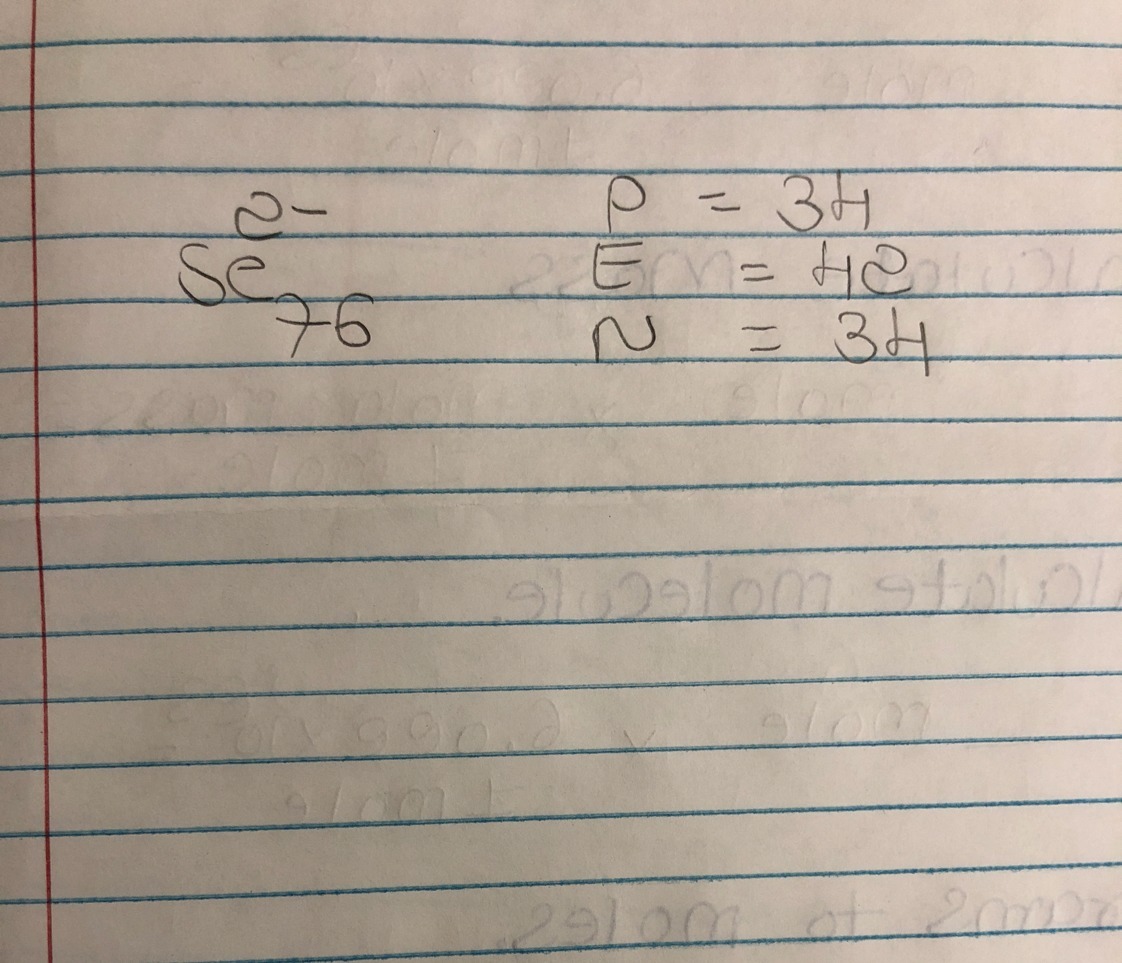 2-
Se
76
P = 34
E = 42
N = 34